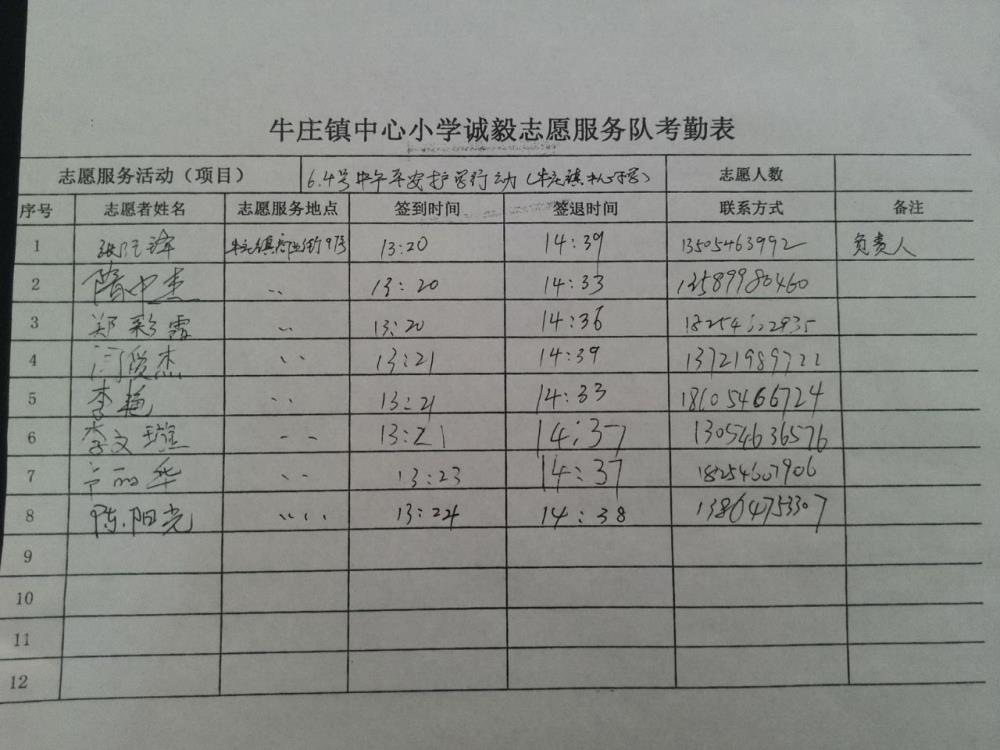 牛庄镇中心小学诚毅志愿服务队考勤表
志愿服务活动（项目） 6.4号中午平安护学行动（牛庄镇中心小学） 志愿人数
序号 志愿者姓名 志愿服务地点 签到时间 签退时间 联系方式 备注
1 牛庄镇商业街9号 13:20 14:39 13505463992 负责人
2 隋中杰 〃 13:20 14:33 13589980460
3 郑彩霞 〃 13:20 14:36
4 闫俊杰 〃 13:21 14:39 13721989722
5 李艳 〃 13:21 14:33 18605466724
6 李文璇 〃 13:21 14:37 13054636576
7 丽华 〃 13:23 14:37 18254607906
8 陈阳光 〃 13:24 14:38 13864753307
9
10
11
12